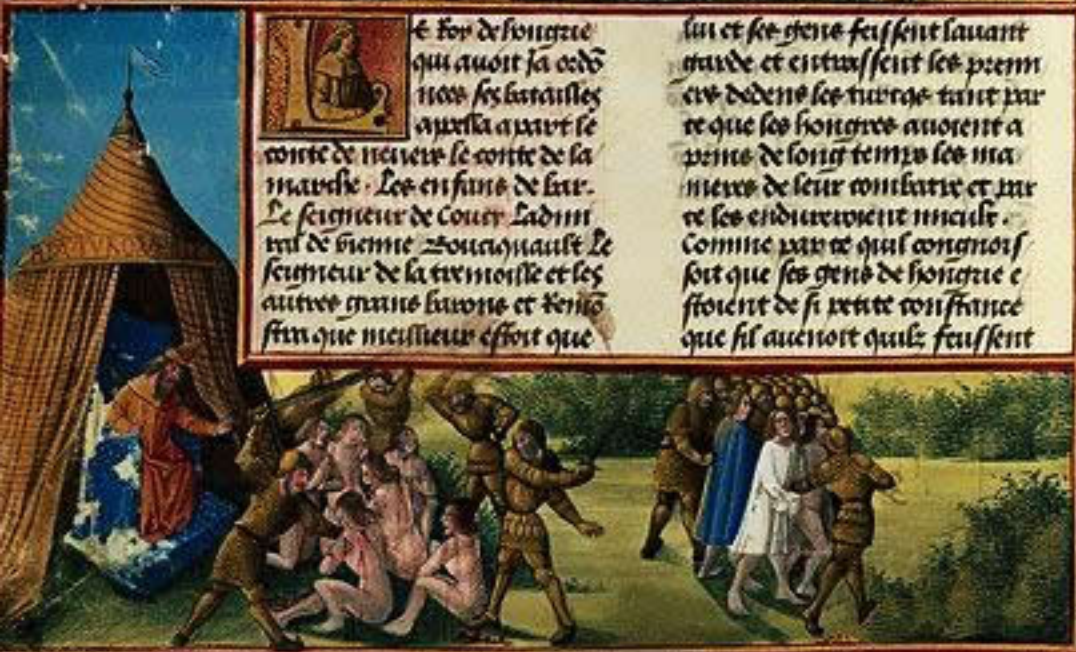 Le Roy de hongrie
qui auoit ja ordõ
nees ses batailles
apella a part le
conte de neuers le conte de la
marche. Les enfans de bar.
Le seigneur de Coucy Ladmi
ral de vienne Bouciquault Le
seigneur de la tremoille et les
autres grans barons et Remõ
stra que meilleur estoit que
lui et ses gens feissent lauant
garde et entrassent les premi
ers dedens les turcqs tant par
ce que les hongres auoient a
prins de long temps les ma
nieres de leur combatre et par
ce les endureroient mieulx.
Comme par ce quil congnois
soit que ses gens de hongrie e
stoient de si petite constance
que sil auenoit quilz feussent